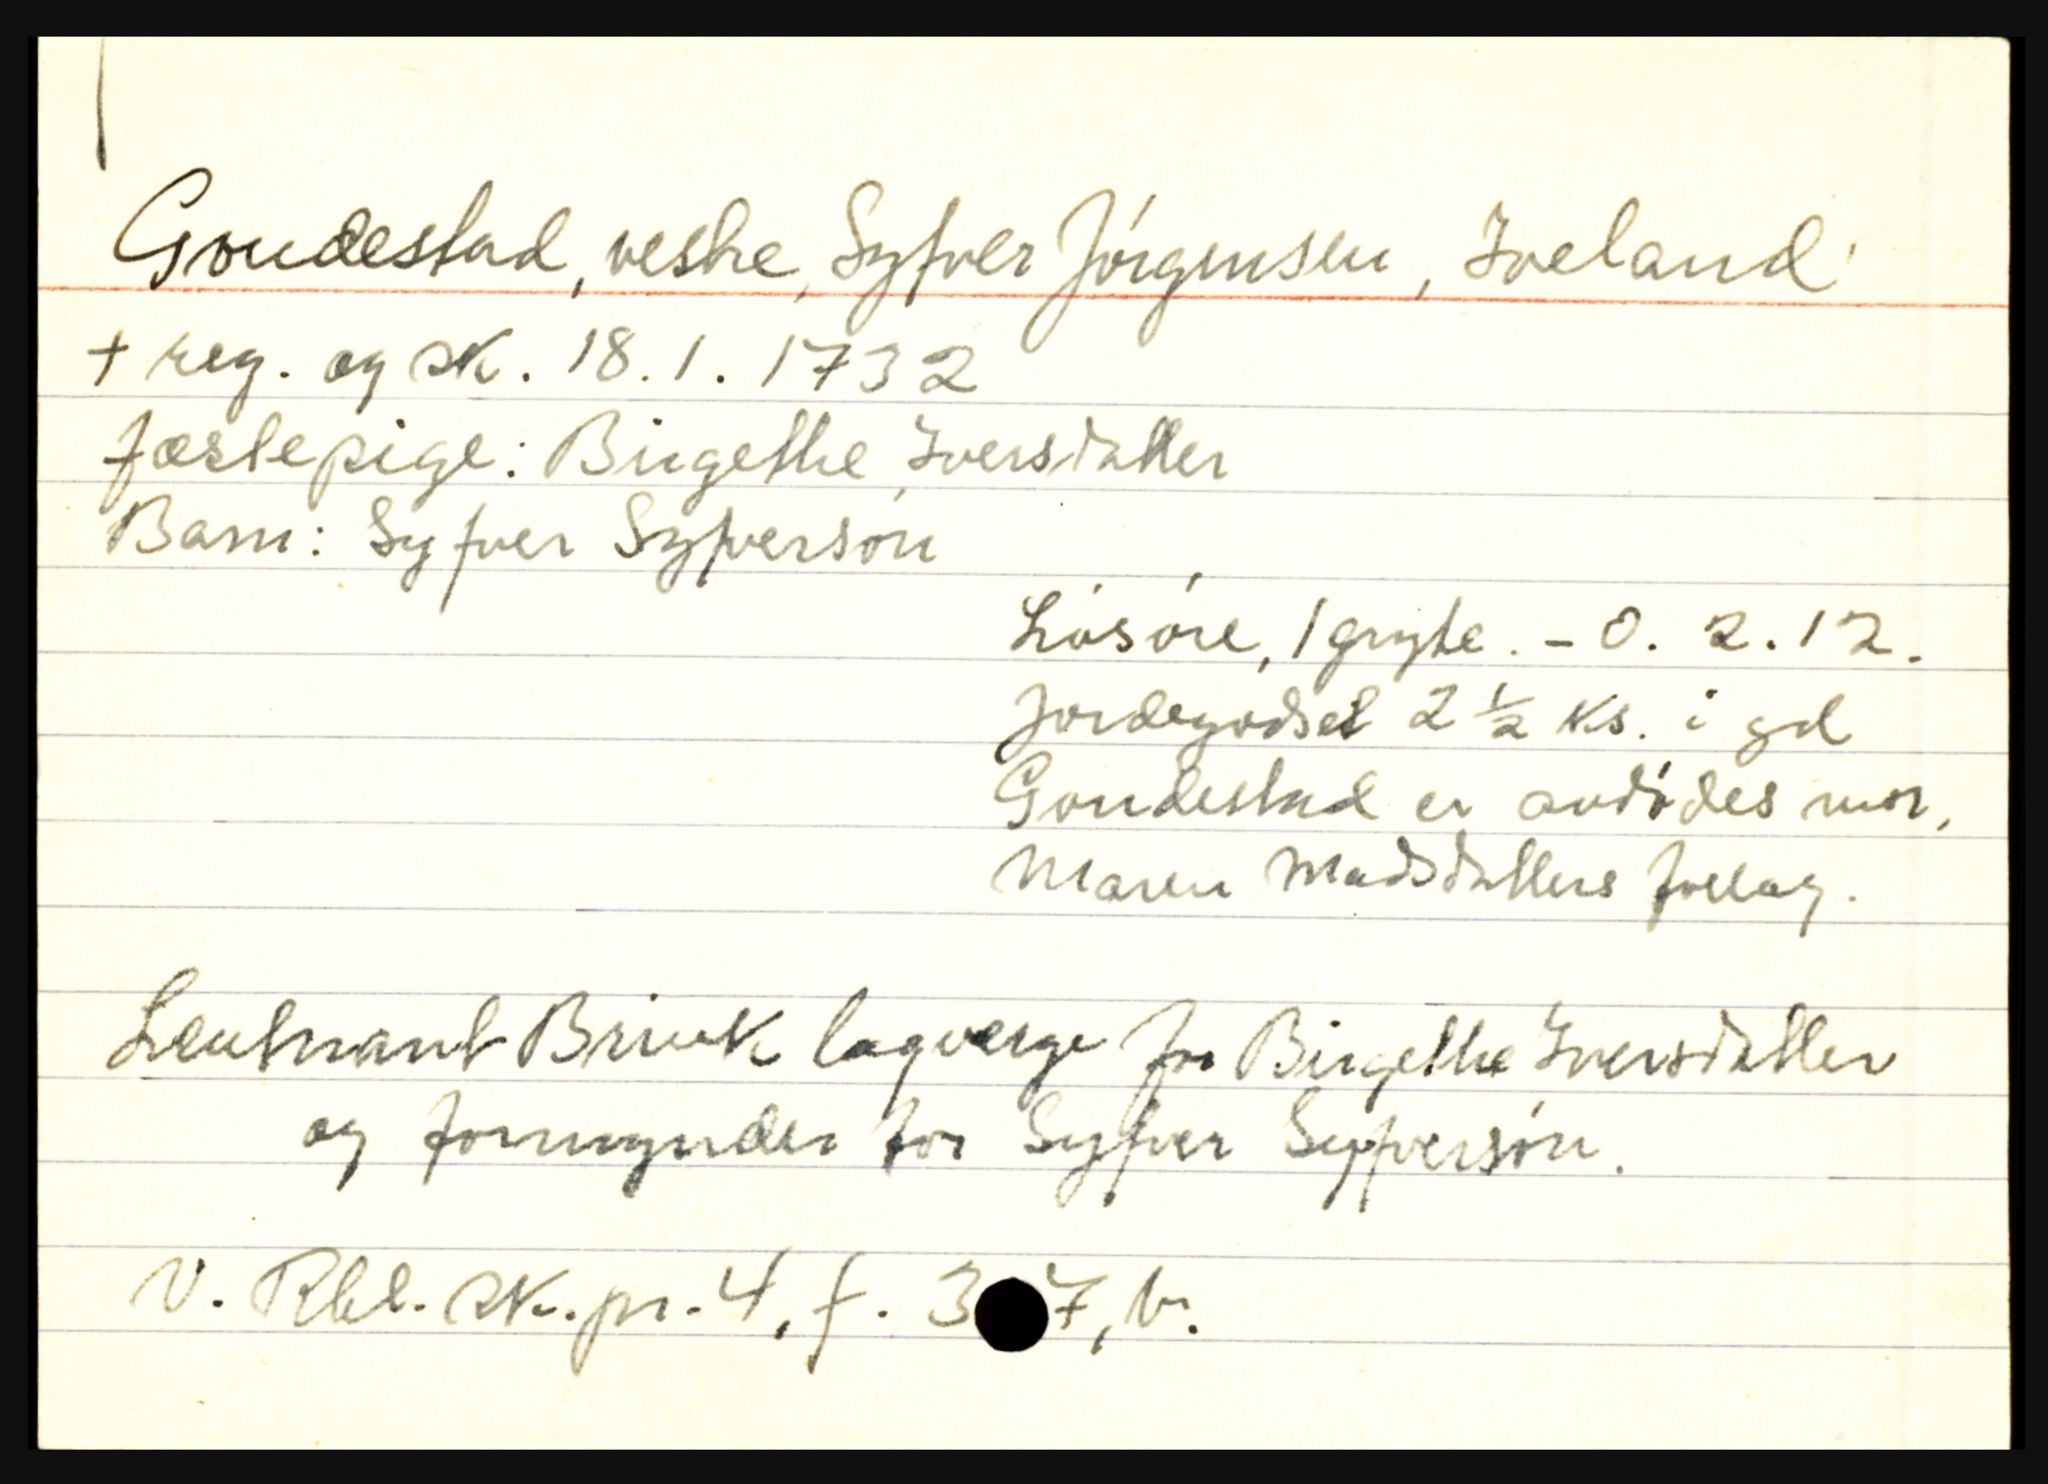 Gondestad, vestre, Syfver Jörgensen, Iveland
+ reg. og sk. 18.1.1732
fæstepige: Birgethe Iversdatter
Barn: Syfver Syfversön
Lösöre, 1 gryte. - 0. 2. 12.
Jordegodset 2 1/2 ks. i gd
Gondestad er avdödes mor,
Maren Madsdatters forlag.
Leutnant Brinck lagverge for Birgethe Iversdatter
og formynder for Syfver Syfversön.
V. Rbl. sk. pr. 4, f. 3 7, b.